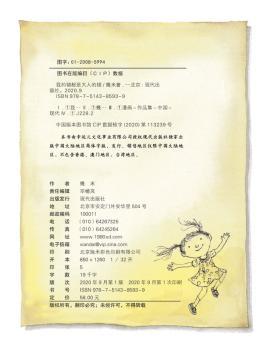 图字：01-2008-5994
图书在版编目（CIP）数据
版社，2020.9
ISBN 978-7-5143-8593-9
中国版本图书馆CIP数据核字（2020）第113239号
本书由幸运儿文化事业有限公司授权现代出版社独家出
版中国大陆地区简体字版，发行、销售地区仅限中国大陆地
区，不包含香港、澳门地区、台湾地区。
责任编辑
出版发行 现代出版社
地址 北京市安定门外安华里504号
邮政编码 100011
电话 (010) 64267325
传真 (010) 64245264
网址 www.1980xd.com
电子邮箱 xiandai@vip.sina.com
开本 650×1260 1／32
印张 5
字数 19千字
版次 2020年9月第1版 2020年9月第1次印刷
书号 ISBN 978-7-5143-8593-9
定价 56.00元
版权所有，翻印必究；未经许可，不得转载